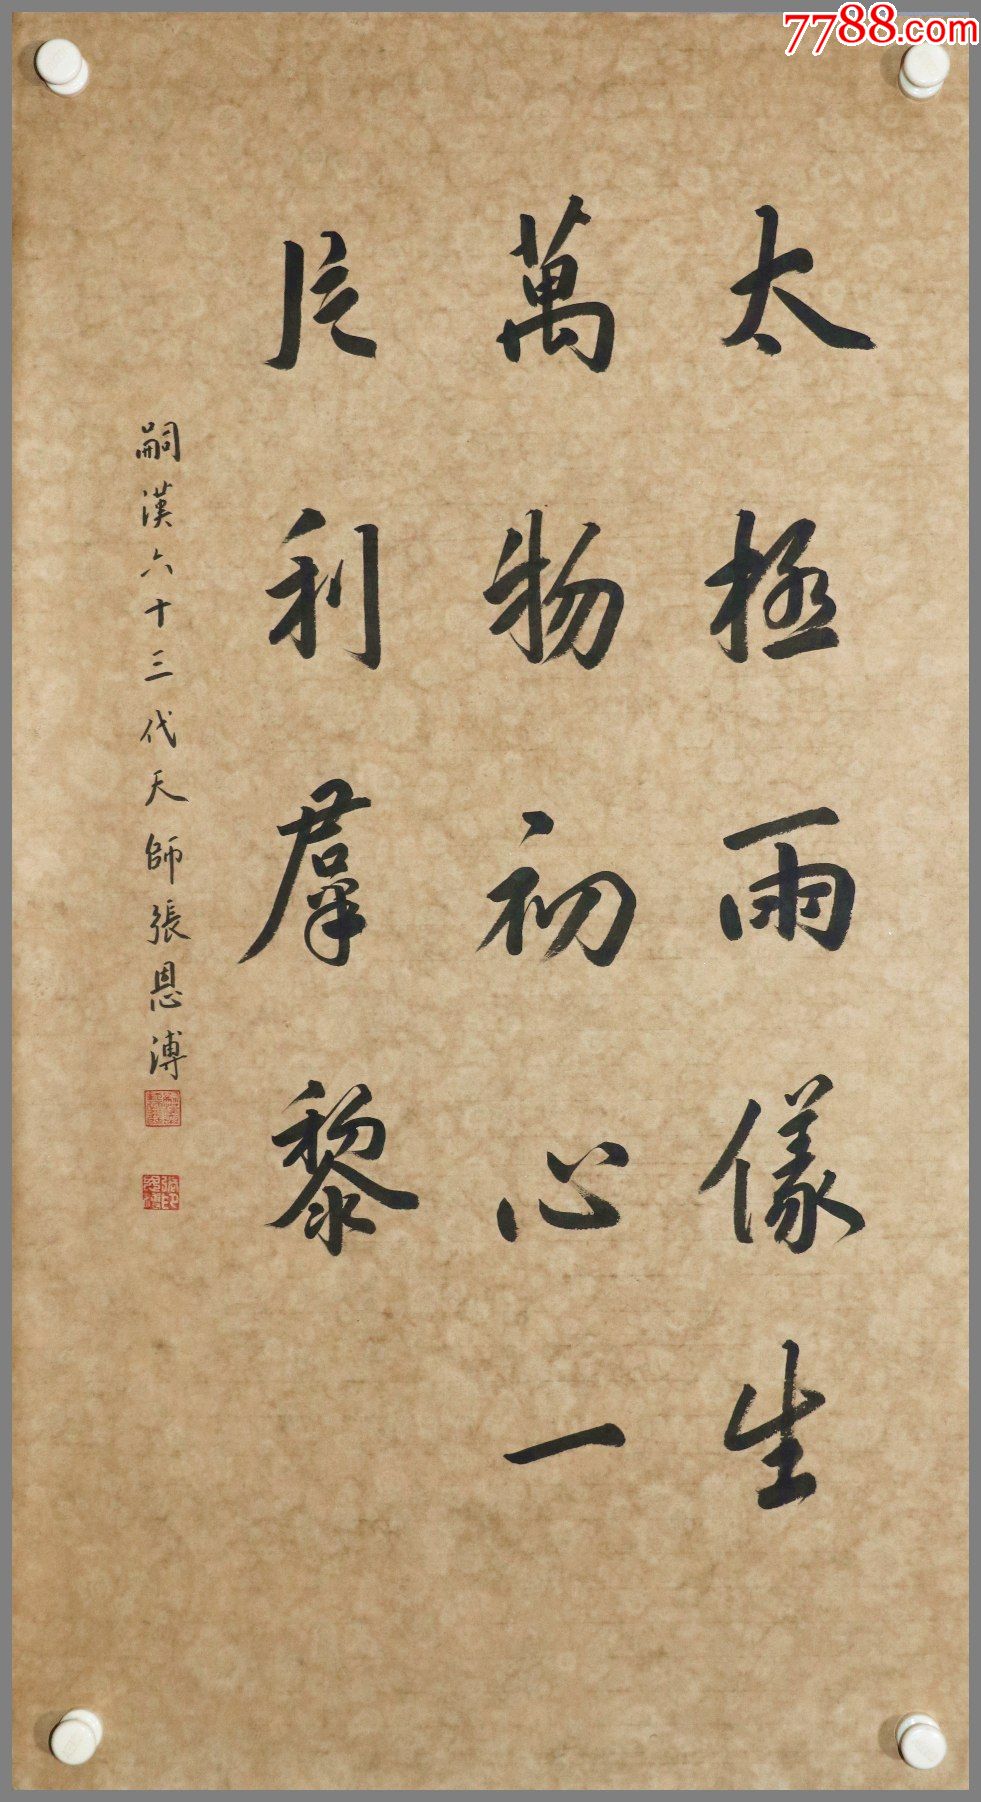 7788.com
太極兩儀生
萬物初心一
片利羣黎
嗣漢六十三代天師張恩溥